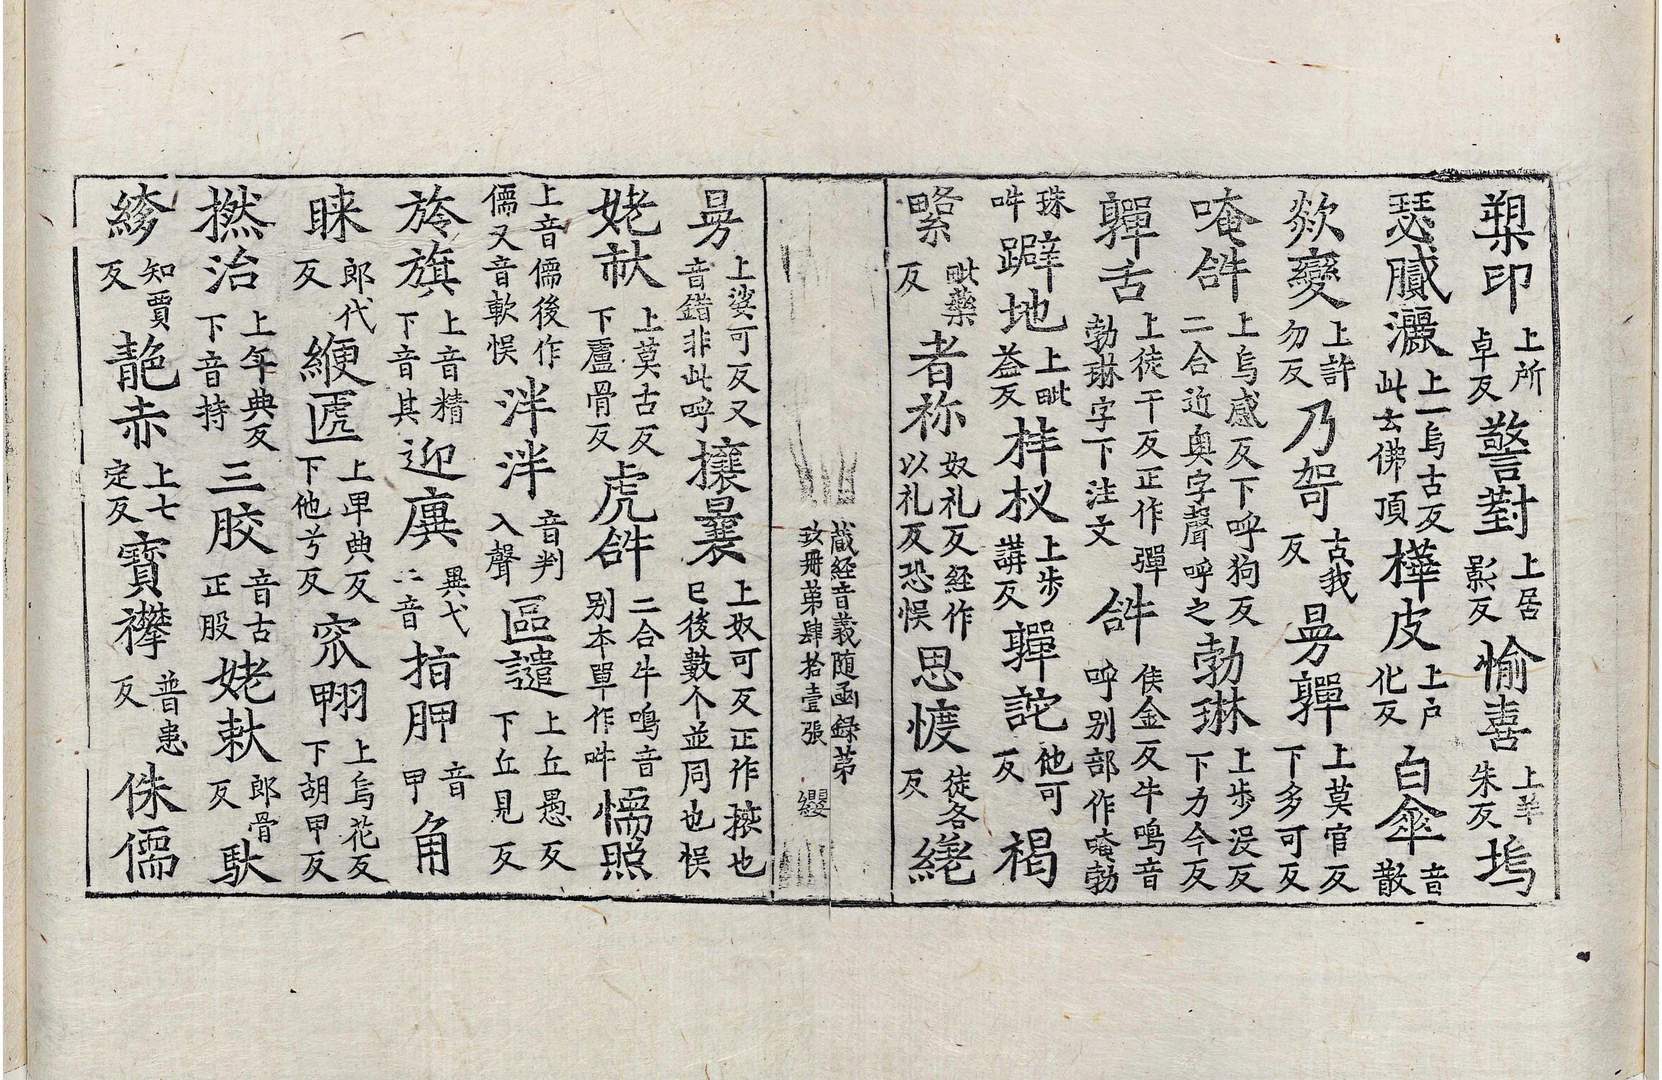 槊印上所卓反警對上居影反愉喜上羊朱反塢
瑟膩灑上一烏古反此云佛頂樺皮上户化反白傘音散
欻變上許勿反乃哿古我反㝃鄲上莫官反下多可反
唵𤙖上烏感反下呼狗反二合近奥字聲呼之勃琳上步没反下力今反
舌上徒干反正作彈勃琳字下注文𤙖侯金反牛鳴音呼别部作唵勃
琳吽躃地上毗益反柈杈上步講反詑他可反褐
毗藥反者祢奴礼反經作以礼反恐悮思㦜徒各反繞
藏經音義随函録第玖册第肆拾壹張 纓
上娑可反又音錯非此呼攘曩上奴可反正作㩴也已後數个並同也悮
姥㹜上莫古反下盧骨反虎𤙖二合牛鳴音别本單作吽懦照
上音儒後作儒又音軟悮泮泮音判入聲區譴上丘愚反下丘見反
旍旗上音精下音其迎廙異弋二音拍胛音甲角
睞郎代反緶匾上甲典反下他兮反窊翈上烏花反下胡甲反
撚治上年典反下音持三胶音古正股姥㹜郎骨反馱
䋾知賈反靘赤上七定反寳襻普患反侏儒